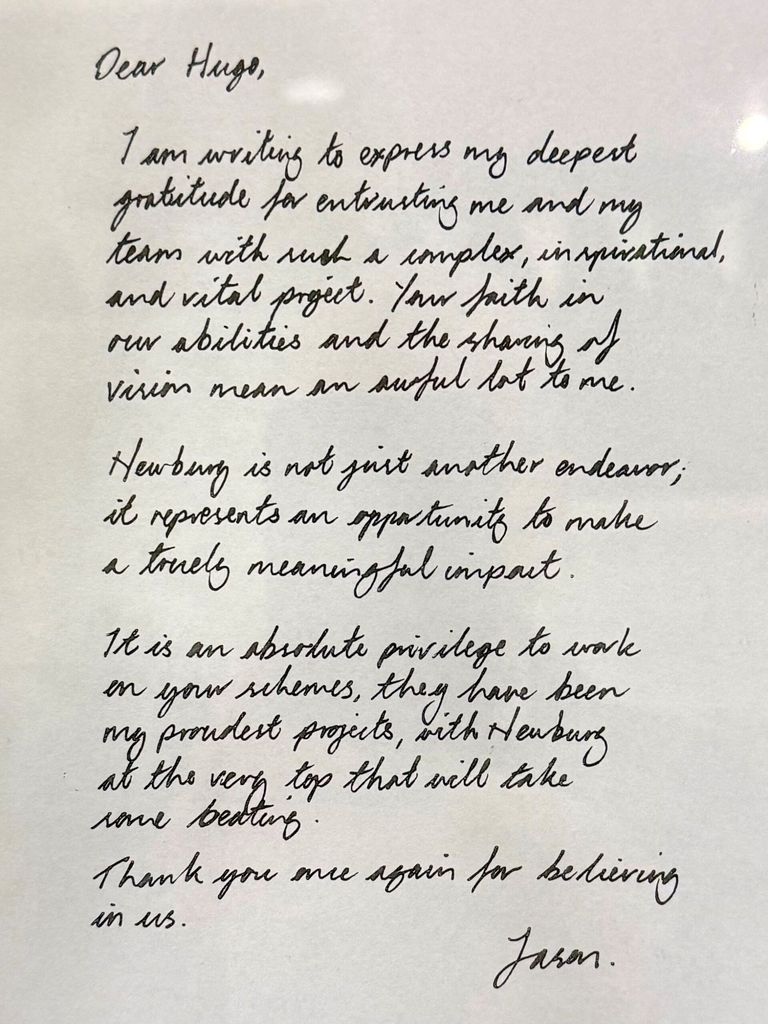 Dear Hugo,
I am writing to express my deepest
gratitude for entrusting me and my
team with such a complex, inspirational,
and vital project. Your faith in
our abilities and the sharing of
vision mean an awful lot to me.
Newburg is not just another endeavor;
it represents an opportunity to make
a truely meaningful impact.
It is an absolute privilege to work
on your schemes, they have been
my proudest projects, with Newburg
at the very top that will take
some beating.
Thank you once again for believing
in us.
Jason.